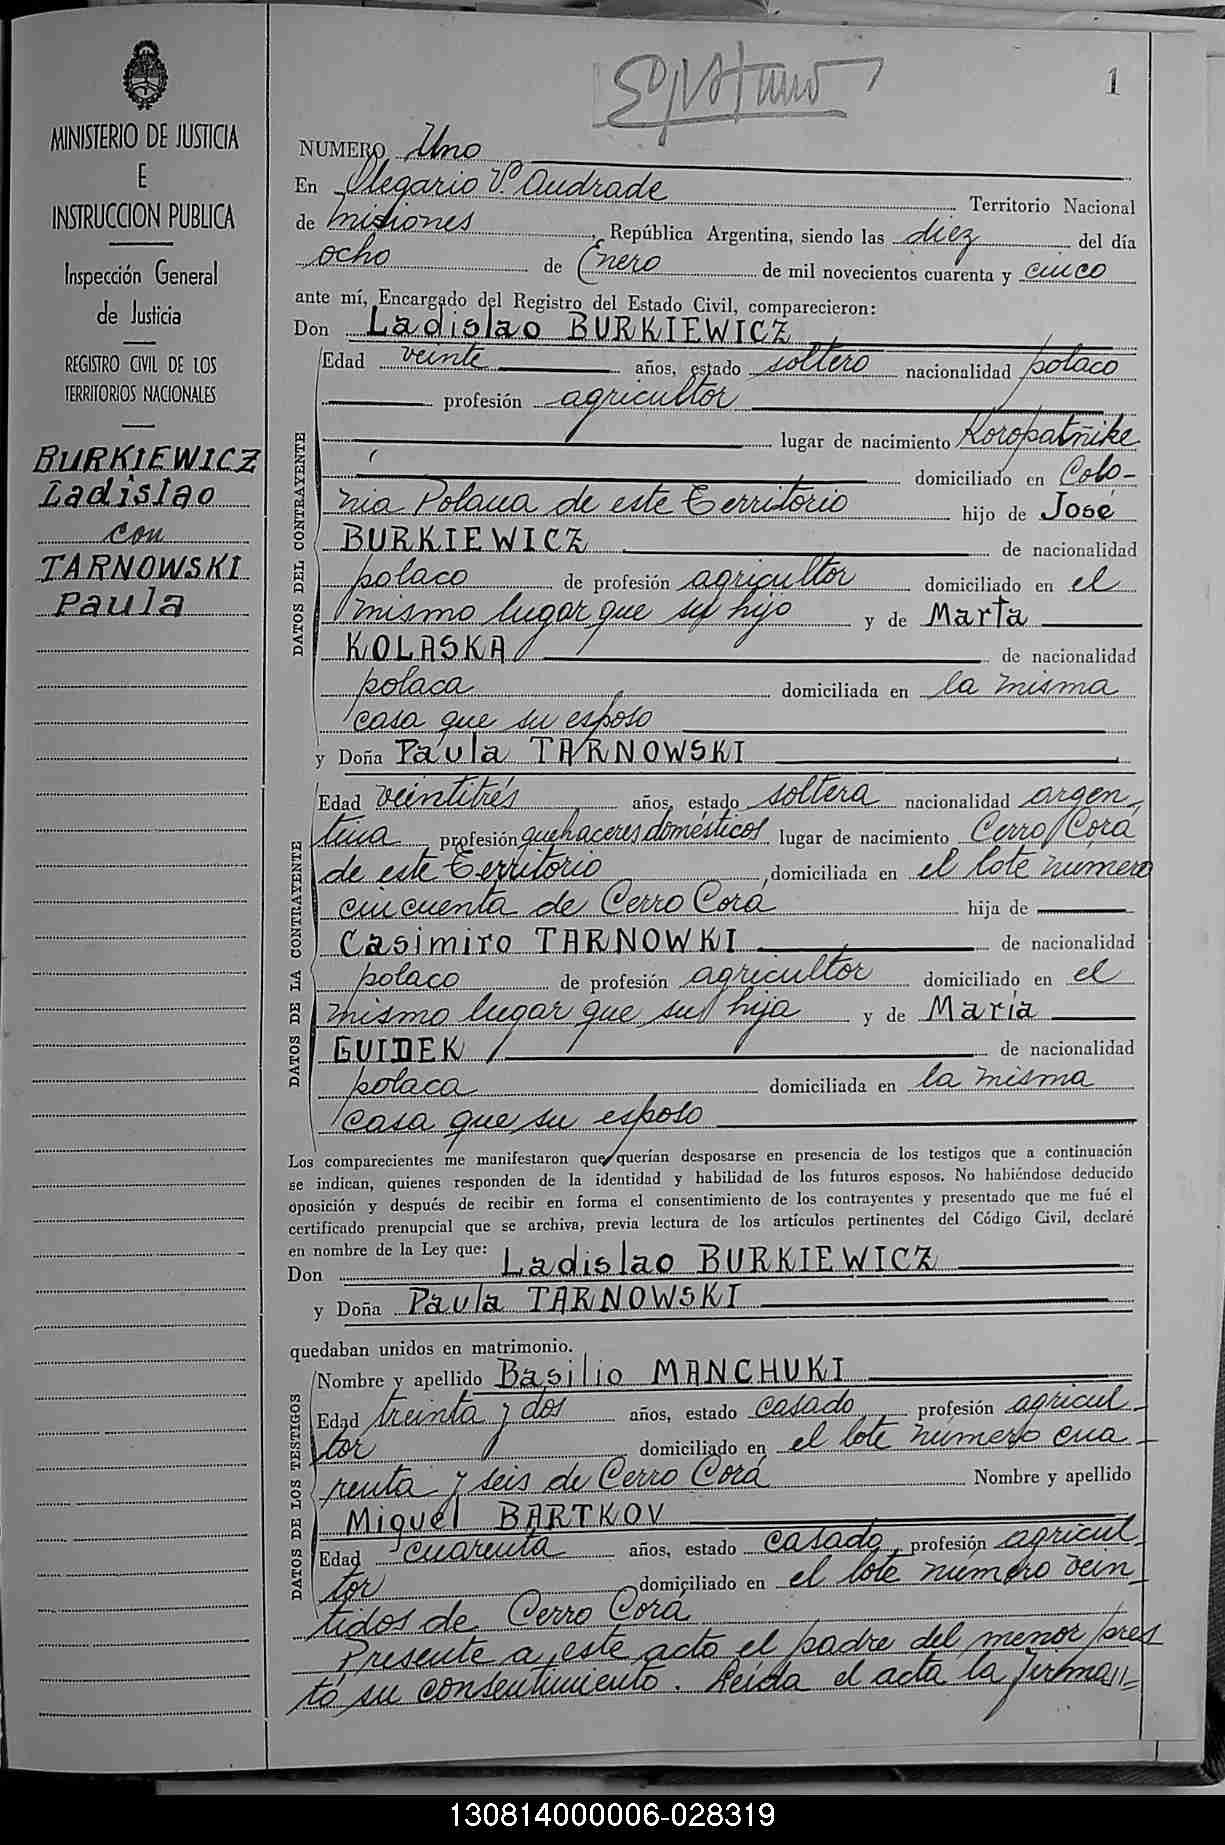 1
MINISTERIO DE JUSTICIA
E
INSTRUCCION PUBLICA
Inspección General
de Justicia
REGISTRO CIVIL DE LOS
TERRITORIOS NACIONALES
BURKIEWICZ
Ladislao
con
TARNOWSKI
Paula
NUMERO Uno
En Olegario V. Andrade Territorio Nacional
de Misiones, República Argentina, siendo las diez del día
ocho de Enero de mil novecientos cuarenta y cinco
ante mí, Encargado del Registro del Estado Civil, comparecieron:
Don Ladislao BURKIEWICZ
DATOS DEL CONTRAYENTE
Edad veinte años, estado soltero nacionalidad polaco
profesión agricultor
lugar de nacimiento Koropatñike
domiciliado en Colo-
nia Polaca de este Territorio hijo de José
BURKIEWICZ de nacionalidad
polaco de profesión agricultor domiciliado en el
mismo lugar que su hijo y de Marta
KOLASKA de nacionalidad
polaca domiciliada en la misma
casa que su esposo
y Doña Paula TARNOWSKI
DATOS DE LA CONTRAYENTE
Edad veintitrés años, estado soltera nacionalidad argen-
tina profesión quehaceres domésticos lugar de nacimiento Cerro Corá
de este Territorio, domiciliada en el lote número
cincuenta de Cerro Corá hija de
Casimiro TARNOWKI de nacionalidad
polaco de profesión agricultor domiciliado en el
mismo lugar que su hija y de María
GUIDEK de nacionalidad
polaca domiciliada en la misma
casa que su esposo
Los comparecientes me manifestaron que querían desposarse en presencia de los testigos que a continuación
se indican, quienes responden de la identidad y habilidad de los futuros esposos. No habiéndose deducido
oposición y después de recibir en forma el consentimiento de los contrayentes y presentado que me fué el
certificado prenupcial que se archiva, previa lectura de los artículos pertinentes del Código Civil, declaré
en nombre de la Ley que:
Don Ladislao BURKIEWICZ
y Doña Paula TARNOWSKI
quedaban unidos en matrimonio.
DATOS DE LOS TESTIGOS
Nombre y apellido Basilio MANCHUKI
Edad treinta y dos años, estado casado profesión agricul-
tor domiciliado en el lote número cua-
renta y seis de Cerro Corá Nombre y apellido
Miguel BARTKOV
Edad cuarenta años, estado casado, profesión agricul-
tor domiciliado en el lote número vein-
tidos de Cerro Corá
Presente a este acto el padre del menor pres
tó su consentimiento. Leída el acta la firma//=
130814000006-028319